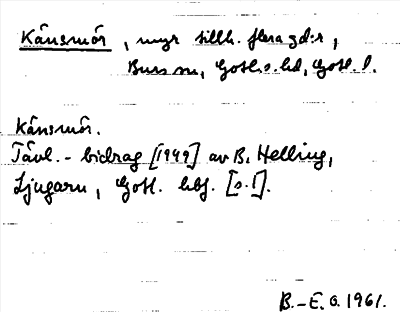 Känsmör, myr tillh. flera gd:r,
Burs sn, Gotl. s. hd, Gotl. l.
Känsmör.
Tävl.-bidrag [1949] av B. Helling,
Ljugarn, Gotl. hbf. [s. 1].
B.-E. O. 1961.